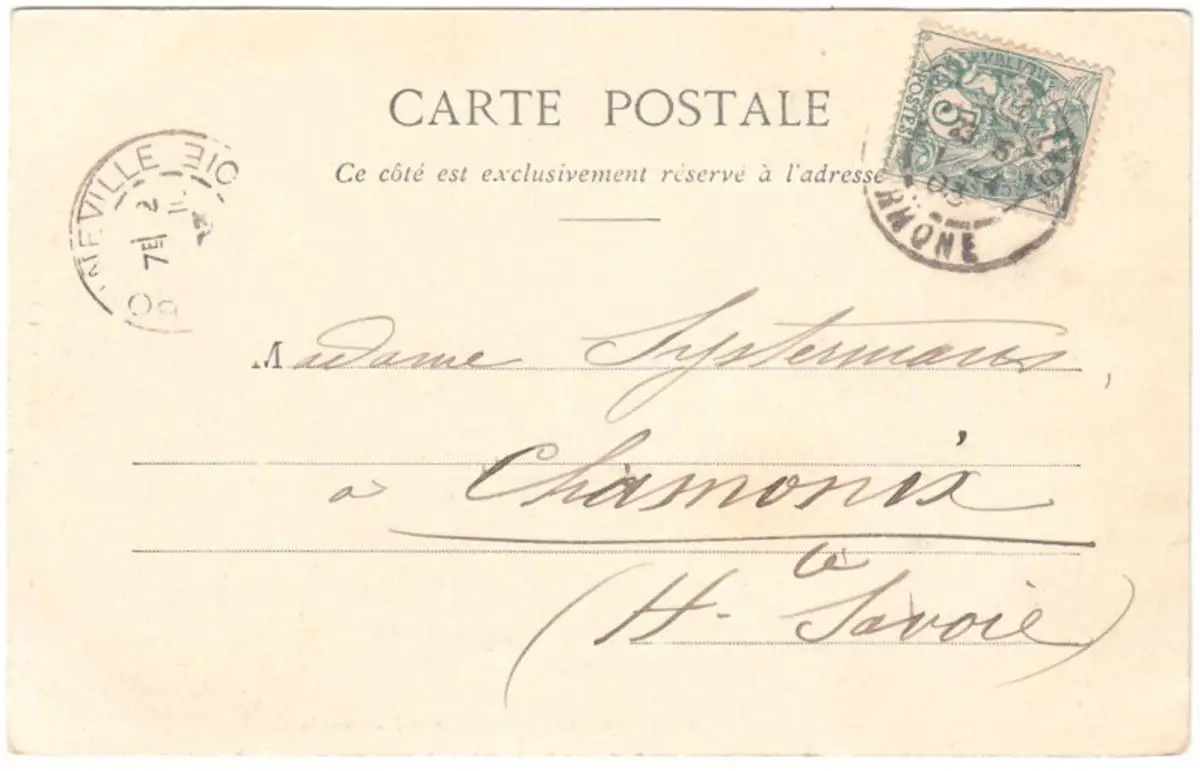 CARTE POSTALE
Ce côté est exclusivement réservé à l'adresse
POSTES
5
RHONE
03
NEVILLE
OIE
7E 2
Madame Systermans,
à Chamonix
(Hte Savoie)